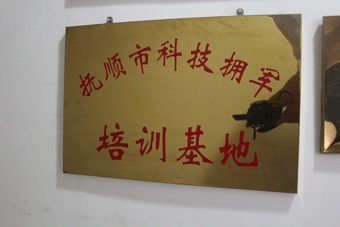 抚顺市科技拥军
培训基地